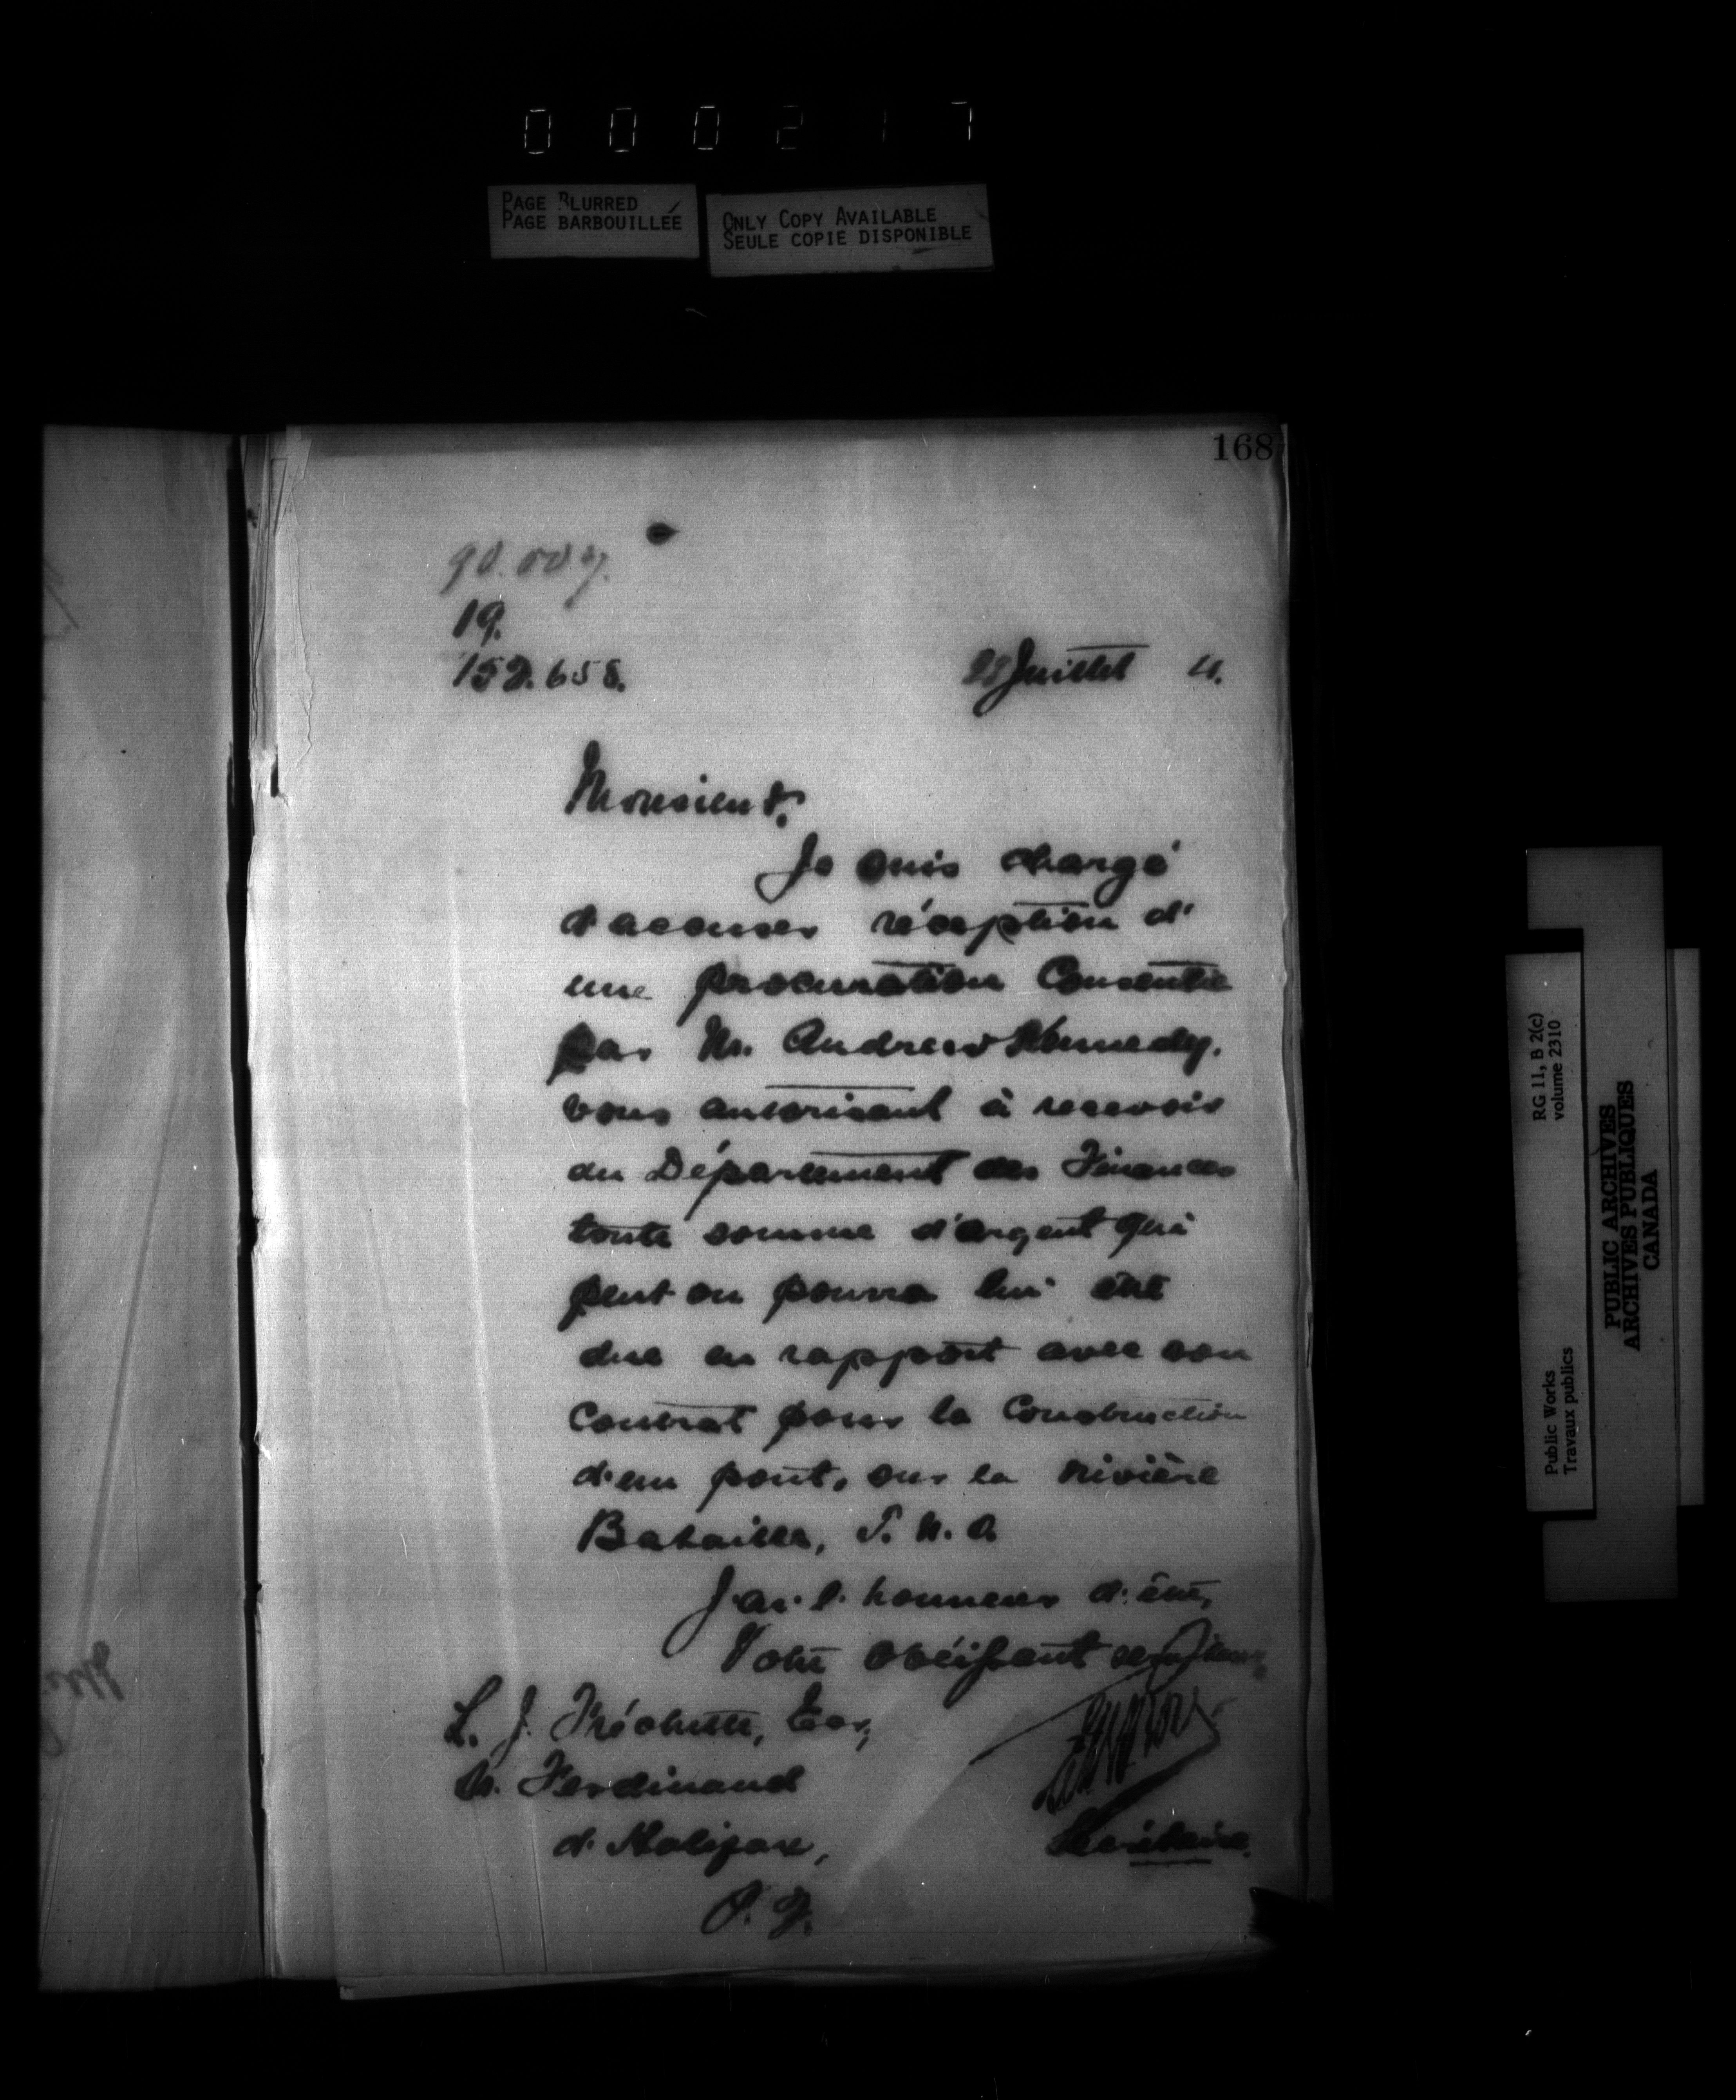 000217
PAGE BLURRED
PAGE BARBOUILLÉE
ONLY COPY AVAILABLE
SEULE COPIE DISPONIBLE
168
90.007.
19.
152.658.
22 Juillet
Monsieur,
Je suis chargé
d'accuser réception d'
une procuration Consentie
par M. Andrew Kennedy,
vous autorisant à recevoir
du Département des Finances
toute somme d'argent qui
peut ou pourra lui être
due en rapport avec son
Contrat pour la Construction
d'un pont, sur la rivière
Bataille, T. N. O.
J'ai l'honneur d'être,
Votre obéissant serviteur
L. J. Fréchette, Ecr,
St. Ferdinand
d'Halifax,
P. Q.
Secrétaire.
RG 11, B 2(c)
volume 2310
Public Works
Travaux publics
PUBLIC ARCHIVES
ARCHIVES PUBLIQUES
CANADA